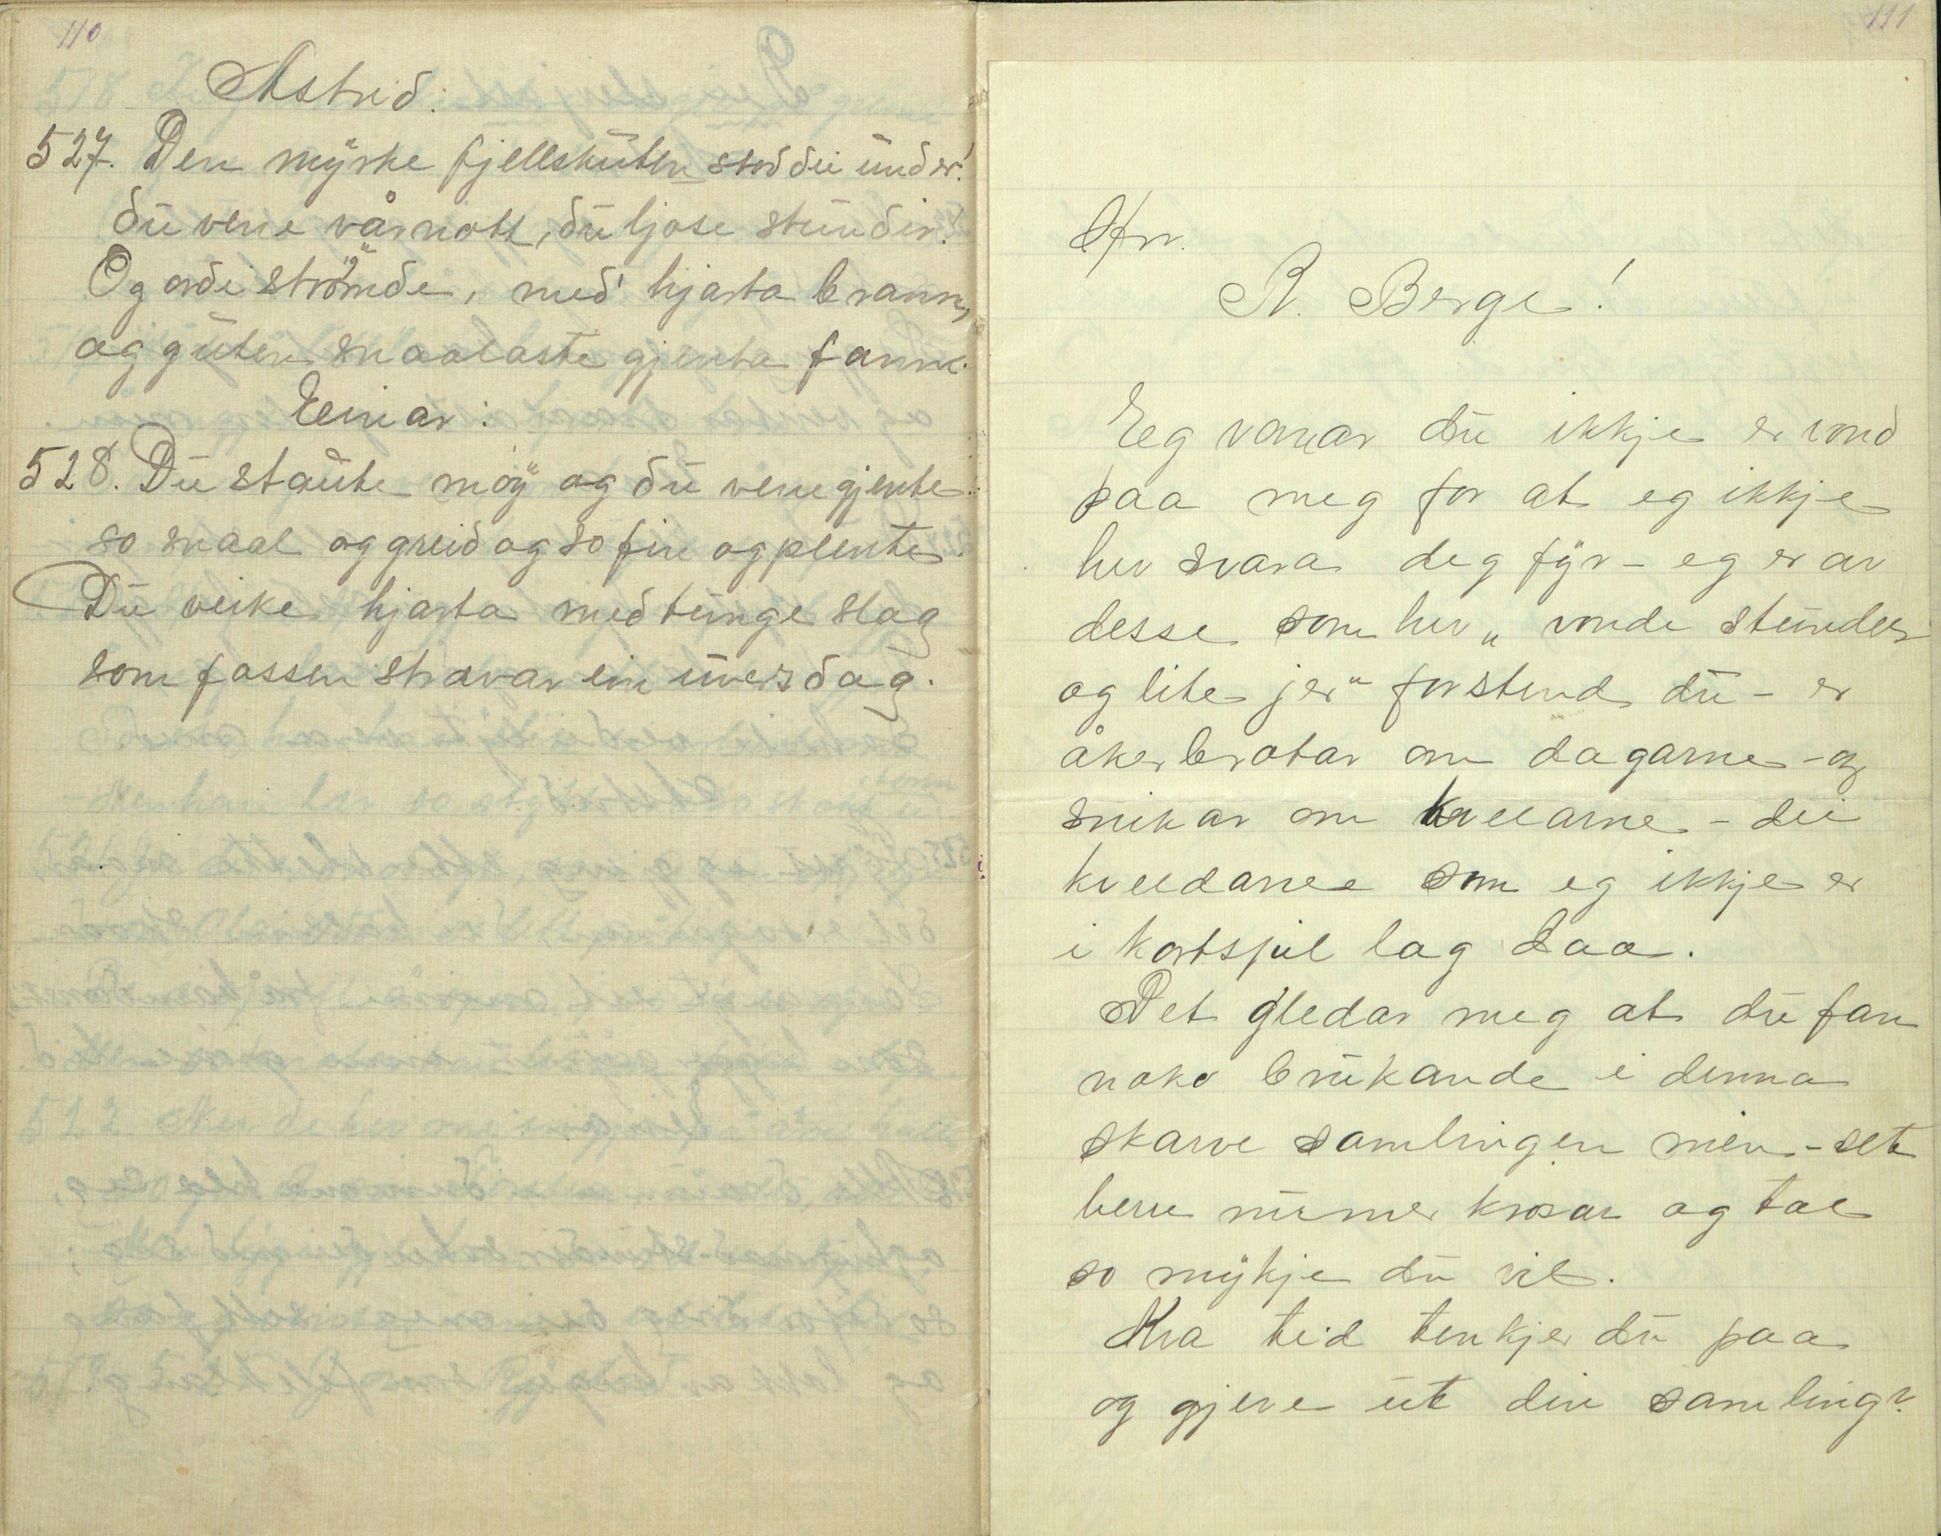 110
Astrid:
527. Den myrke fjellskuten stod dei under!
du vene vårnott, du ljose stunder!
Og ordi strömde, med hjarta brann,
og guten snaalaste gjenta fann.
Einar:
528. Du staute möy og du vene gjente
so snaal og greid og so fin og plente.
Du veike hjarta med tunge slag
som fossen stravar ein uversdag.
111
Hr.
R. Berge!
Eg vonar du ikkje er vond
paa meg for at eg ikkje
hev svara deg fyr - eg er av
desse som hev „vonde stunder
og lite jer“ forstend du - er
åkerbrotar om dagarne - og
snikar om kveldarne - dei
kveldarne som eg ikkje er
i kortspil lag daa.
Det gledar meg at du fan
noko brukande i denna
skarve samlingen min - set
berre numer krosar og tal
so mykje du vil.
Kva tid tenkjer du paa
og gjeve ut din samling?